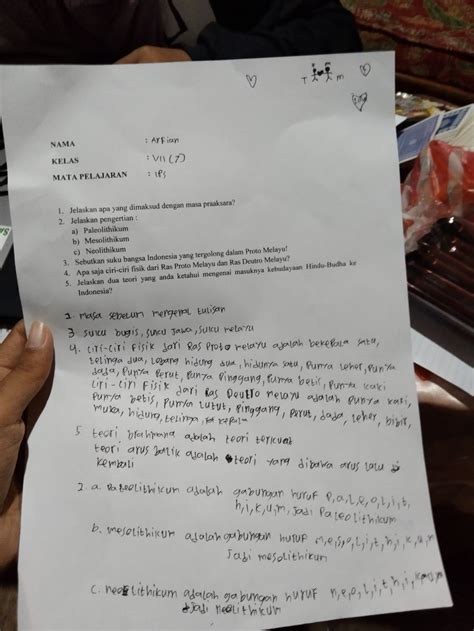 T M
NAMA : Arfian
KELAS : VII (7)
MATA PELAJARAN : IPS
1. Jelaskan apa yang dimaksud dengan masa praaksara?
2. Jelaskan pengertian :
a) Paleolithikum
b) Mesolithikum
c) Neolithikum
3. Sebutkan suku bangsa Indonesia yang tergolong dalam Proto Melayu!
4. Apa saja ciri-ciri fisik dari Ras Proto Melayu dan Ras Deutro Melayu?
5. Jelaskan dua teori yang anda ketahui mengenai masuknya kebudayaan Hindu-Budha ke
Indonesia?
1. masa sebelum mengenal tulisan
3. suku bugis, suku jawa, suku melayu
4. ciri-ciri fisik dari Ras Proto melayu adalah bekepala satu,
telinga dua, lobang hidung dua, hidunya satu, punya leher, punya
dada, punya perut, punya pinggang, punya betis, punya kaki
ciri-ciri fisik dari Ras Deutro melayu adalah punya kaki,
punya betis, punya lutut, pinggang, perut, dada, leher, bibir,
muka, hidung, telinga, kepala
5 teori brahmana adalah teori tercuat
teori arus balik adalah teori yang dibawa arus lalu
kembali
2. a. Paleolithikum adalah gabungan huruf P,a,l,e,o,l,i,t,
h,i,k,u,m, jadi Paleolithikum
b. mesolithikum adalah gabungan huruf m,e,s,o,l,i,t,h,i,k,u,m
jadi mesolithikum
c. neolithikum adalah gabungan huruf n,e,o,l,i,t,h,i,k,u,m
jadi neolithikum